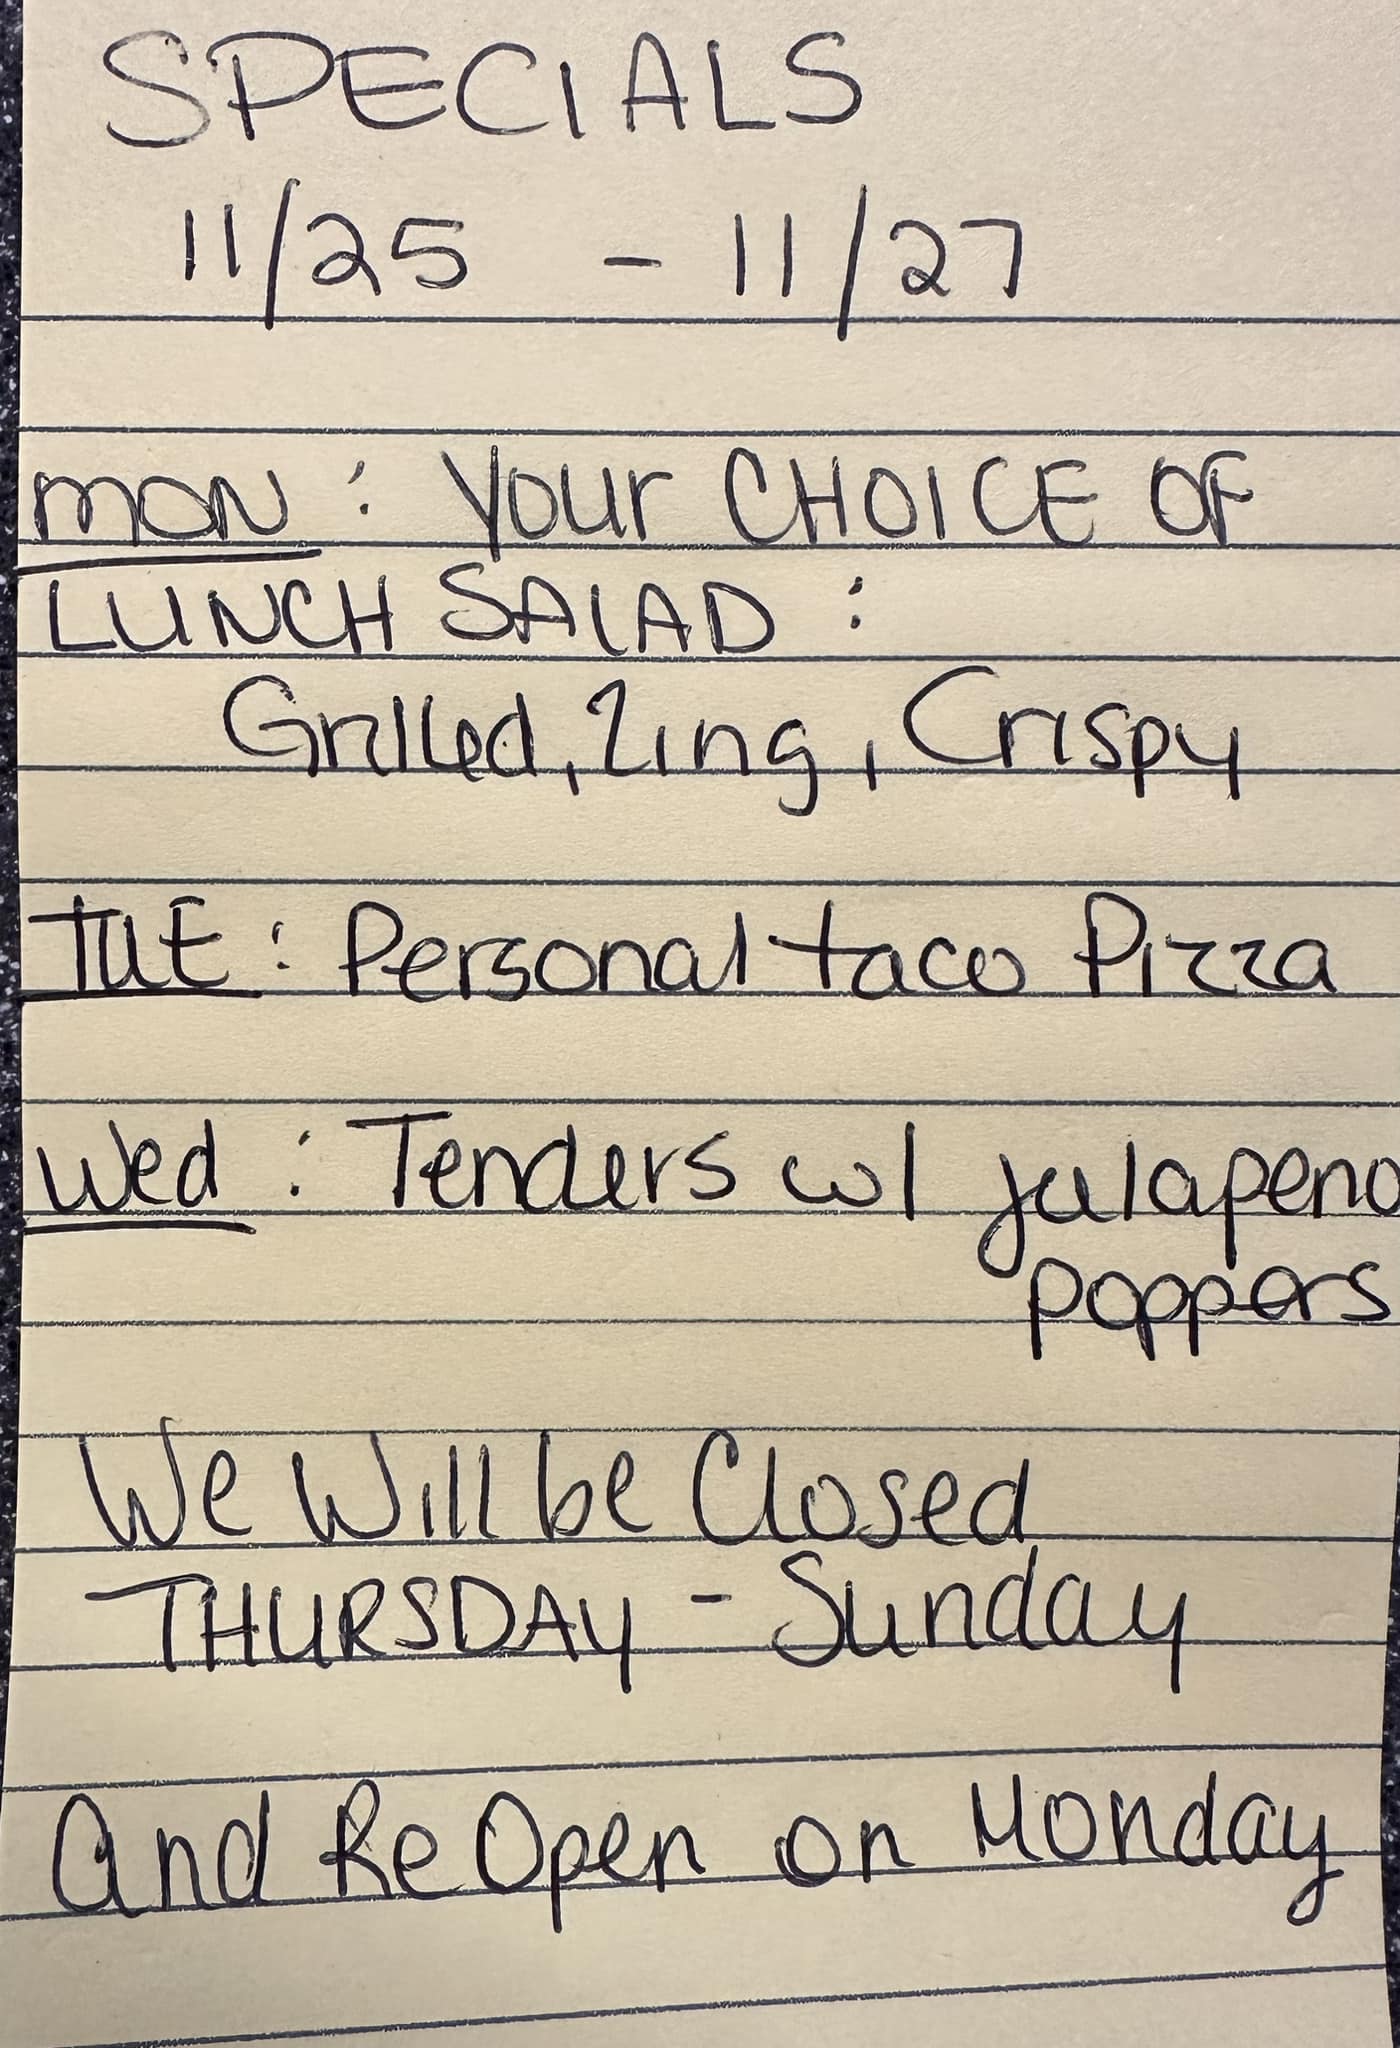 SPECIALS
11/25 - 11/27
MON: Your CHOICE OF
LUNCH SALAD:
Grilled, Zing, Crispy
TUE: Personal taco Pizza
Wed: Tenders w/ jalapeno
poppers
We Will be Closed
THURSDAY - Sunday
And ReOpen on Monday